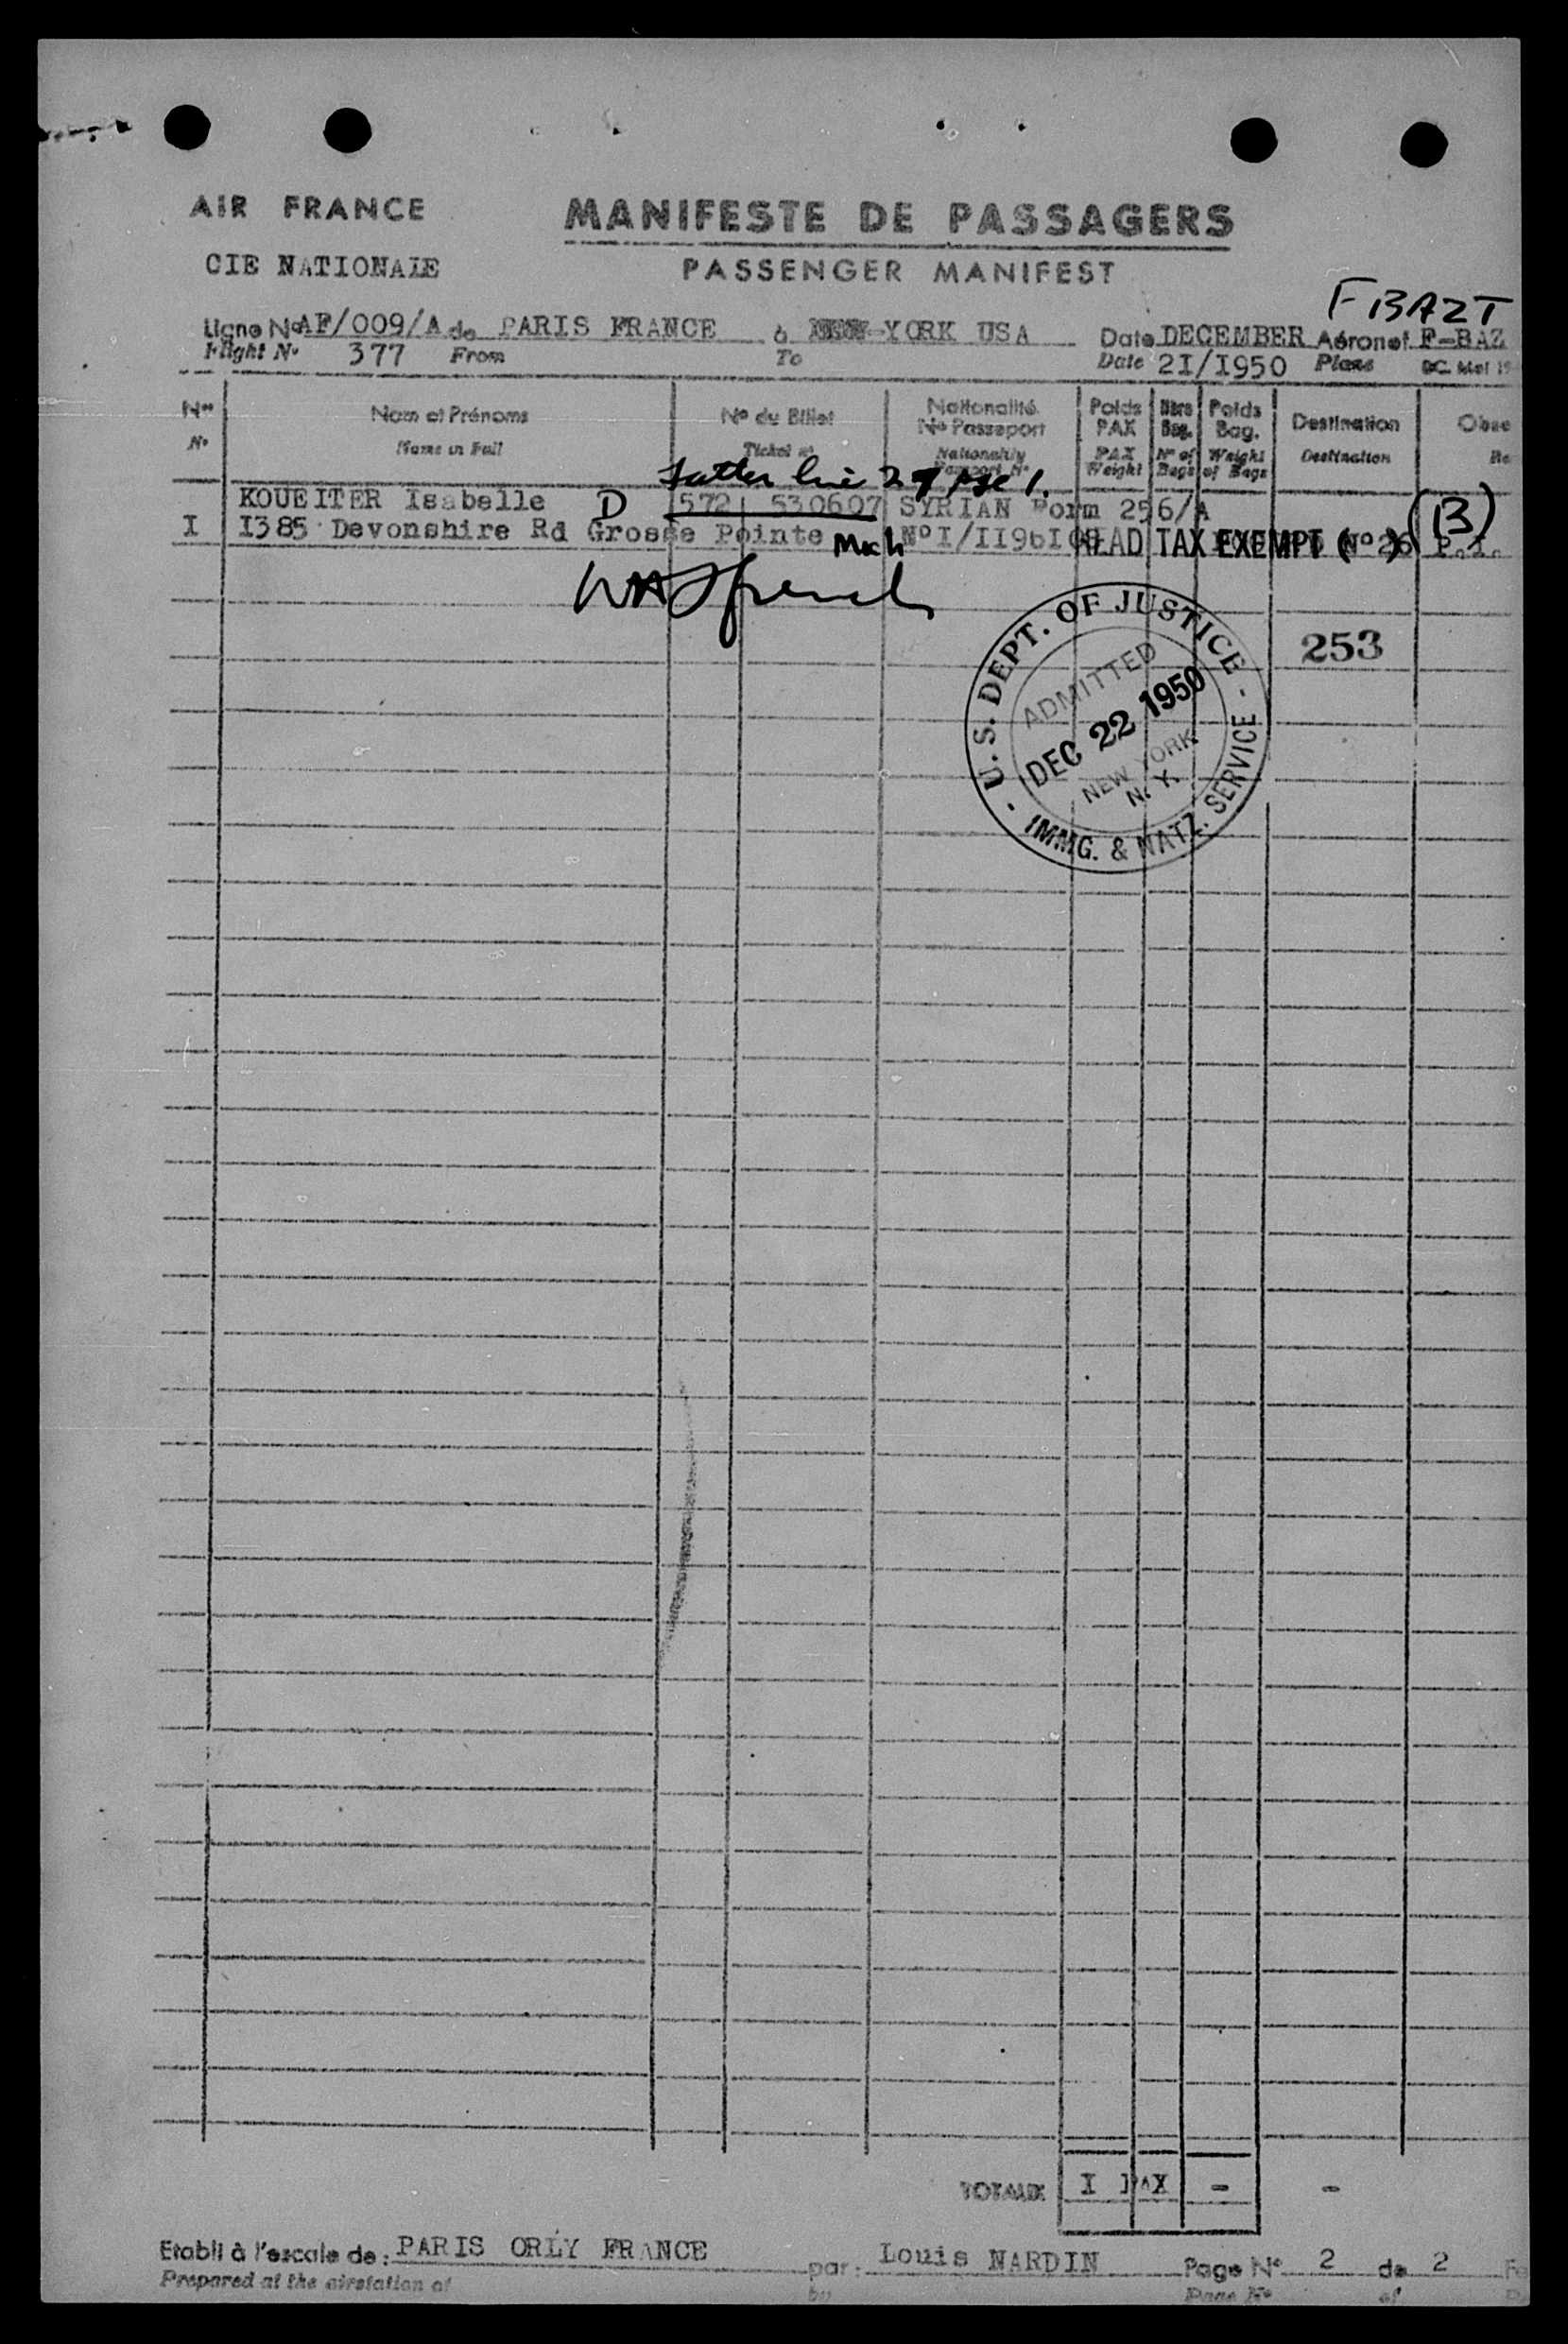 AIR FRANCE MANIFESTE DE PASSAGERS
CIE NATIONALE PASSENGER MANIFEST
F BAZT
Ligne No AF/009/A de PARIS FRANCE à NEW-YORK USA Date DECEMBER Aéronef F-BAZ
Flight No 377 From To Date 21/1950 Plane
Nos Nom et Prénoms No du Billet Nationalité No Passeport Poids PAX Nbre Bag. Poids Bag. Destination Obse
No Name in Full Ticket no Nationality Passport No PAX Weight No of Bags Weight of Bags Destination Re
line 2 of pge 1.
KOUEITER Isabelle D 572 530607 SYRIAN Form 256/A
I I385 Devonshire Rd Grosse Pointe Mich No I/II961 HEAD TAX EXEMPT (B)
253
U. S. DEPT. OF JUSTICE
ADMITTED
DEC 22 1950
NEW YORK
N. Y.
IMMG. & NATZ. SERVICE
TOTAUX I PAX - -
Etabli à l'escale de: PARIS ORLY FRANCE par: Louis NARDIN Page No 2 de 2
Prepared at the airstation of by Page No of